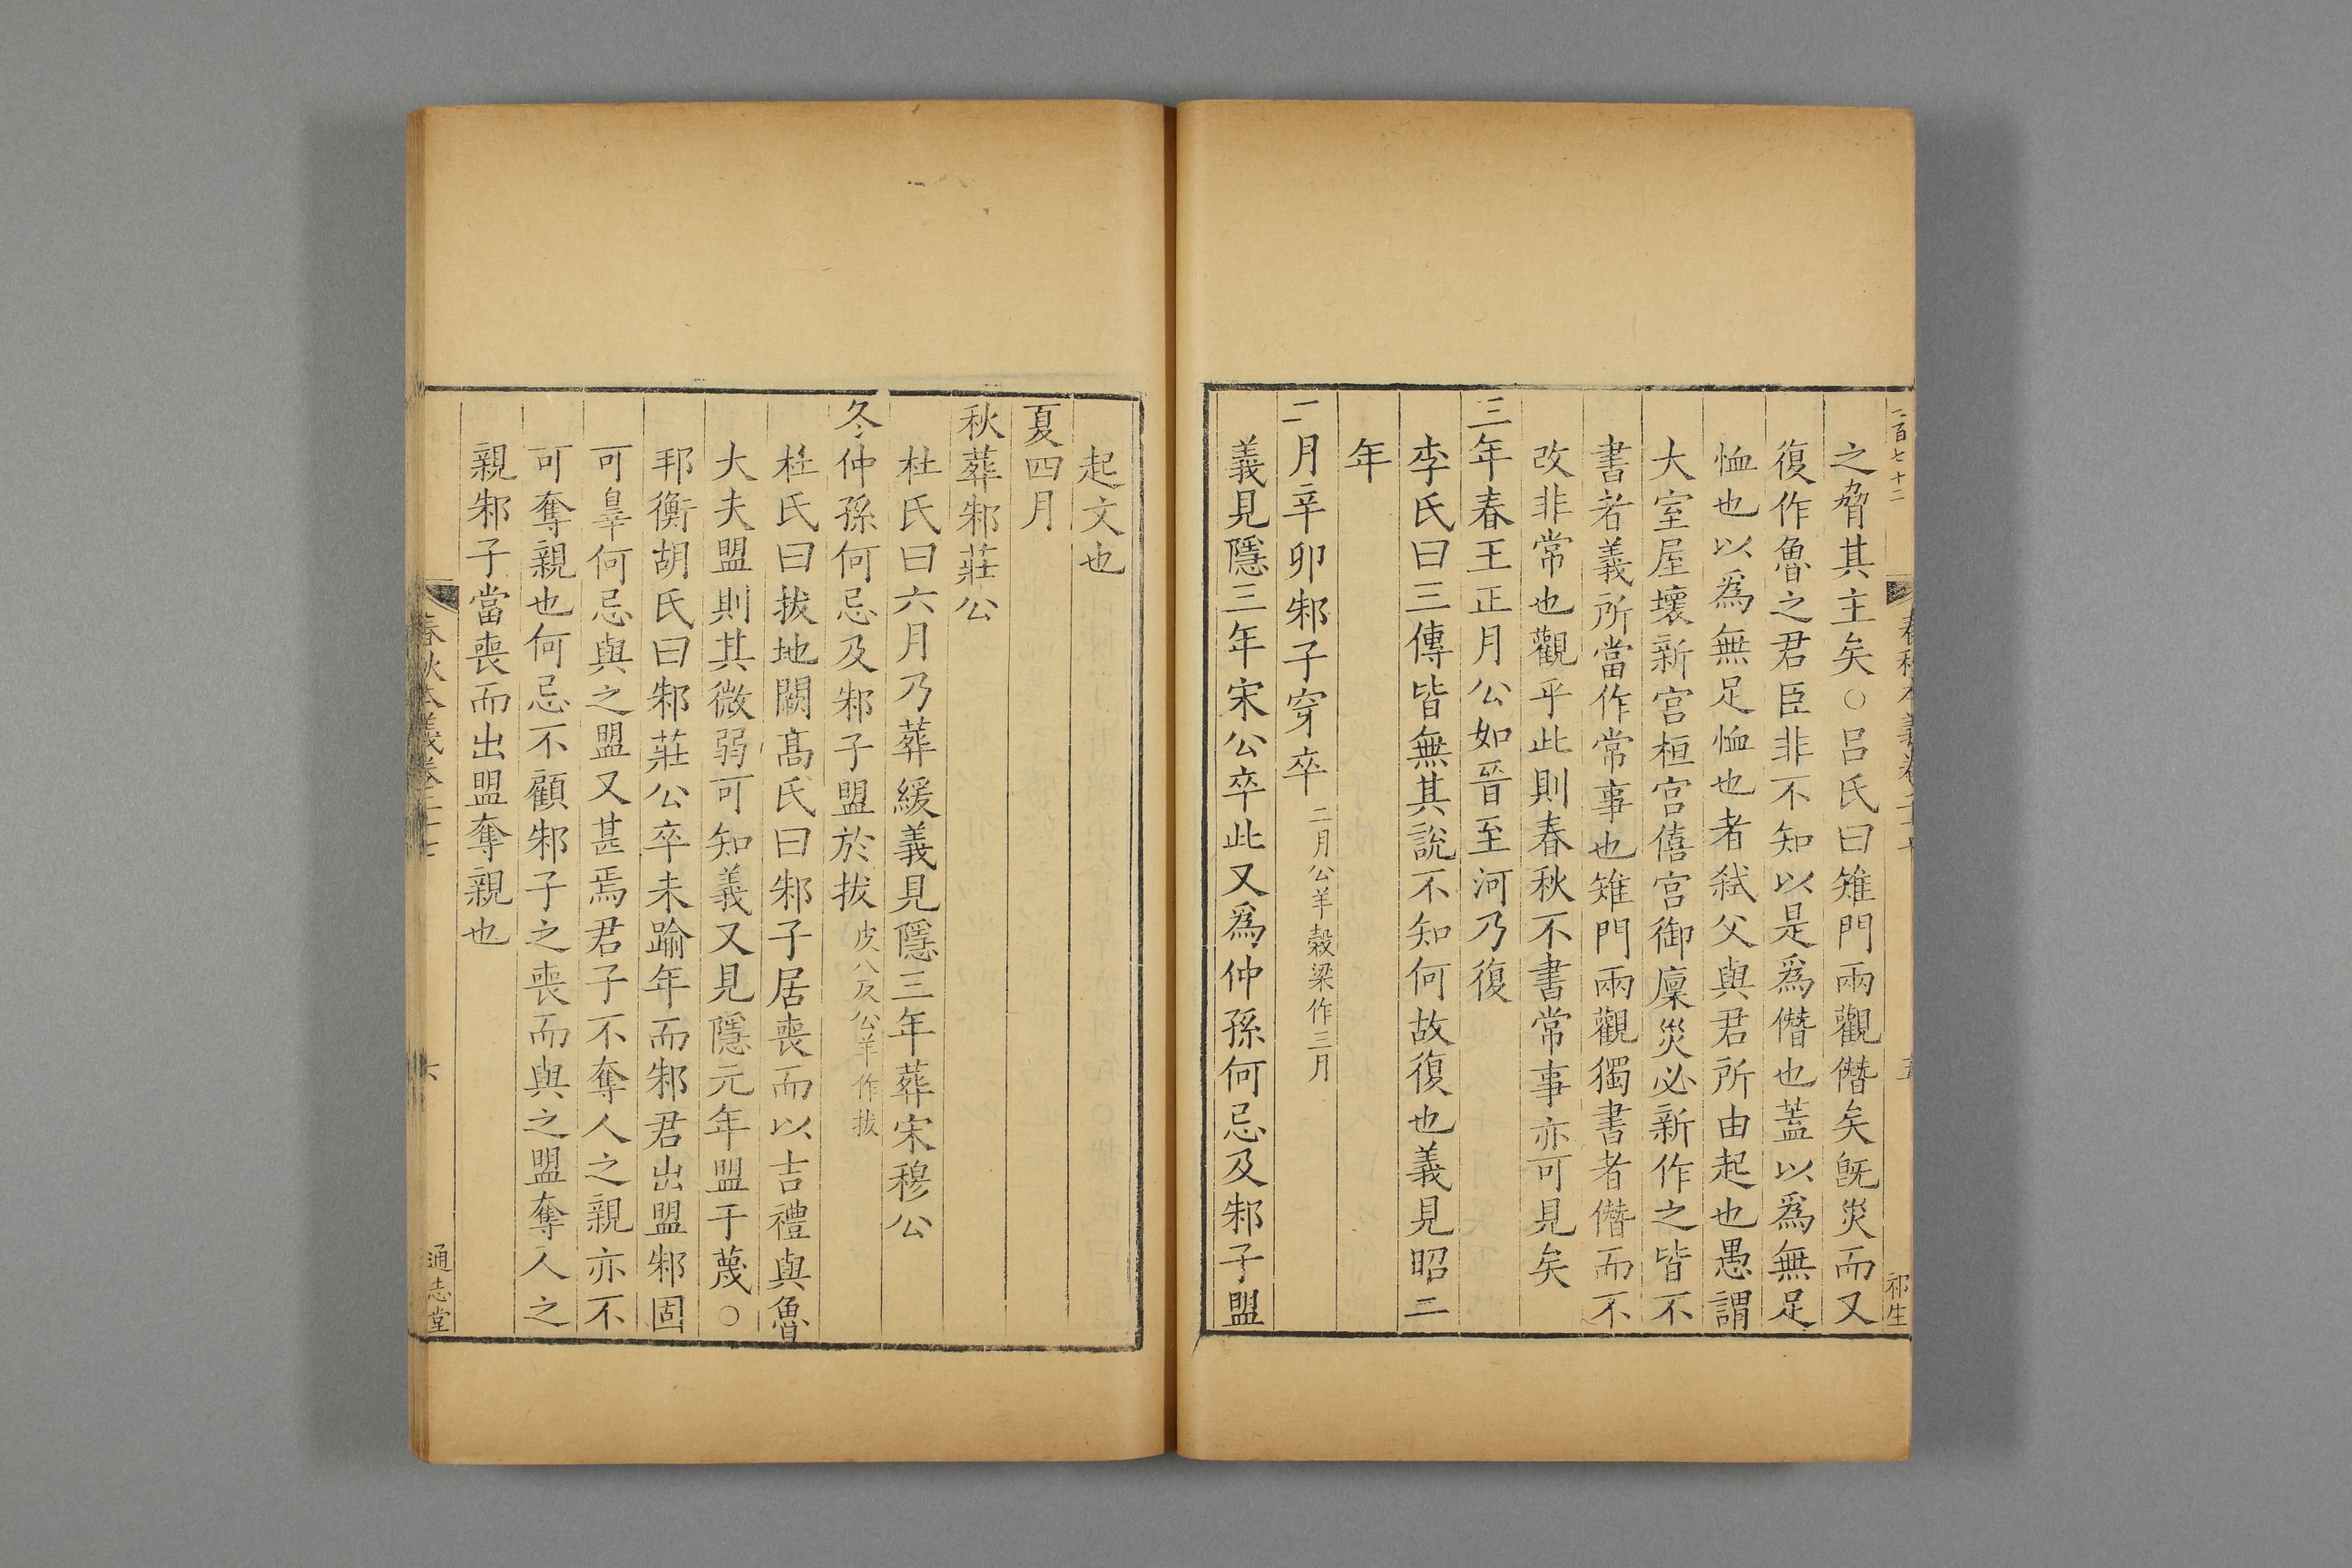 二百七十二
春秋本義卷二十七
五
祁生
之脅其主矣○呂氏曰雉門兩觀僭矣旣災而又
復作魯之君臣非不知以是爲僭也蓋以爲無足
恤也以爲無足恤也者弑父與君所由起也愚謂
大室屋壞新宮桓宮僖宮御廩災必新作之皆不
書者義所當作常事也雉門兩觀獨書者僭而不
改非常也觀乎此則春秋不書常事亦可見矣
三年春王正月公如晉至河乃復
李氏曰三傳皆無其說不知何故復也義見昭二
年
二月辛卯邾子穿卒二月公羊穀梁作三月
義見隱三年宋公卒此又爲仲孫何忌及邾子盟
起文也
夏四月
秋葬邾莊公
杜氏曰六月乃葬緩義見隱三年葬宋穆公
冬仲孫何忌及邾子盟於拔皮八反公羊作拔
杜氏曰拔地闕高氏曰邾子居喪而以吉禮與魯
大夫盟則其微弱可知義又見隱元年盟于蔑○
邦衡胡氏曰邾莊公卒未踰年而邾君出盟邾固
可辠何忌與之盟又甚焉君子不奪人之親亦不
可奪親也何忌不顧邾子之喪而與之盟奪人之
親邾子當喪而出盟奪親也
春秋本義卷二十七
六
通志堂